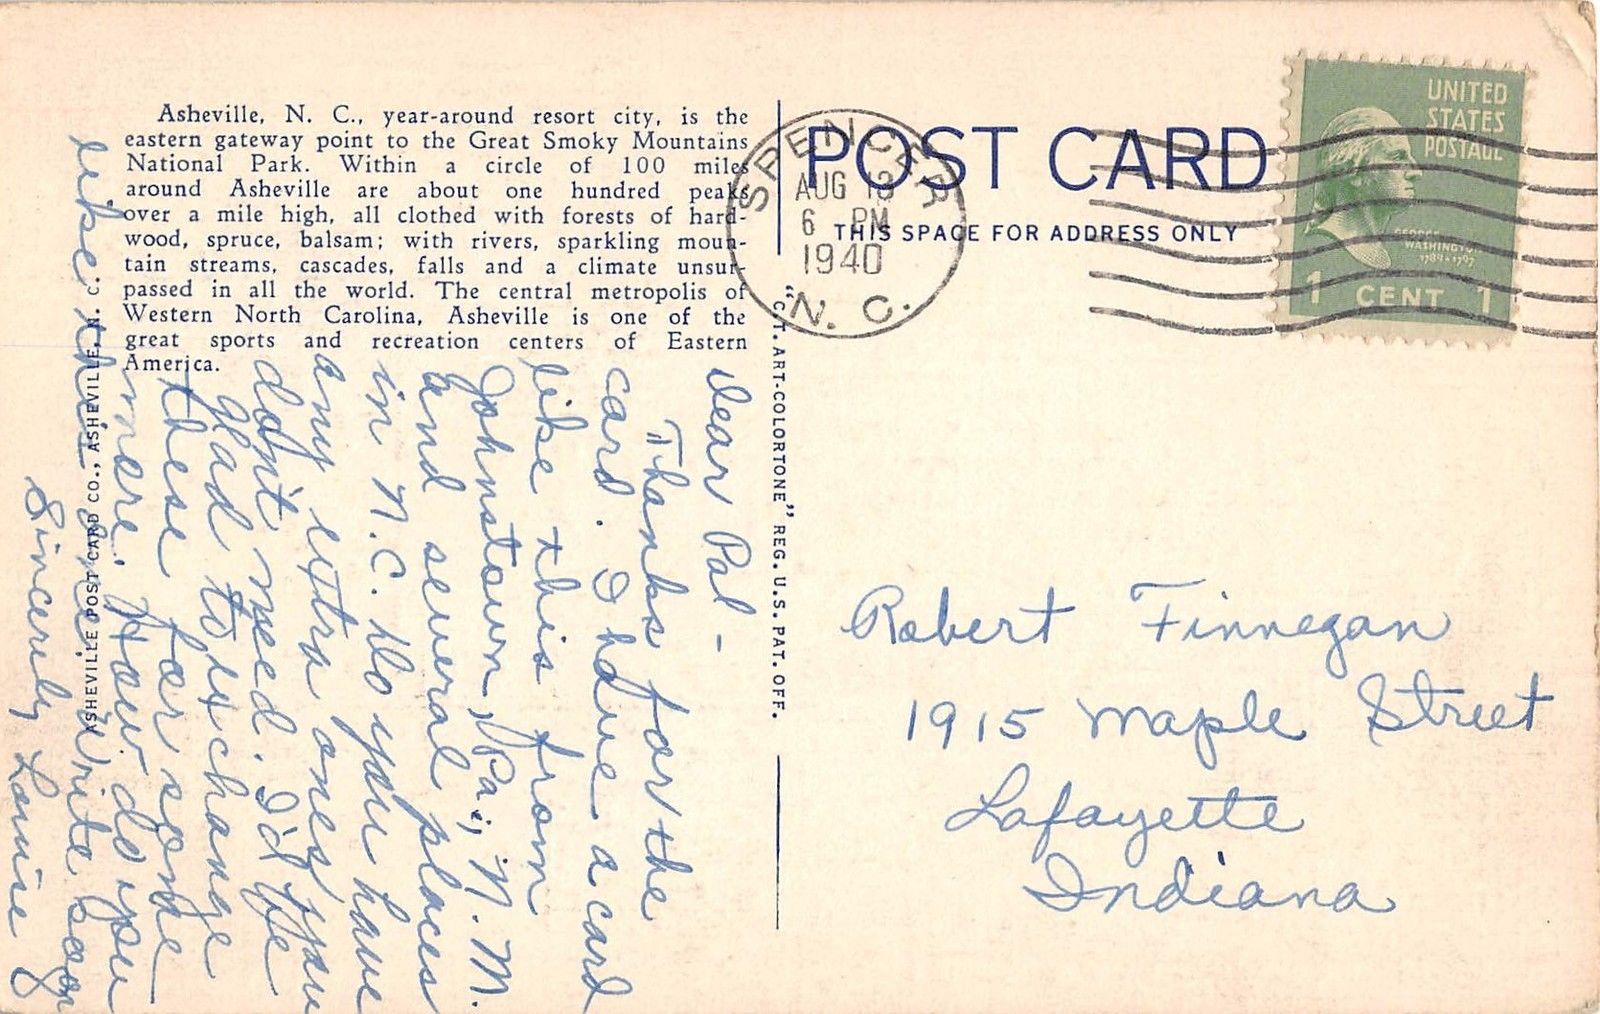 Asheville, N. C., year-around resort city, is the
eastern gateway point to the Great Smoky Mountains
National Park. Within a circle of 100 miles
around Asheville are about one hundred peaks
over a mile high, all clothed with forests of hard-
wood, spruce, balsam; with rivers, sparkling moun-
tain streams, cascades, falls and a climate unsur-
passed in all the world. The central metropolis of
Western North Carolina, Asheville is one of the
great sports and recreation centers of Eastern
America.
Dear Pal -
Thanks for the
card. I have a card
like this from
Johnstown, Pa., N. M.
and several places
in N.C. Do you have
any extra ones you
don't need. I'd be
glad to exchange
these for some
more. How do you
like this one. Write soon
Sincerely Louise
ASHEVILLE POST CARD CO., ASHEVILLE, N. C.
"C.T. ART-COLORTONE" REG. U.S. PAT. OFF.
POST CARD
THIS SPACE FOR ADDRESS ONLY
SPENCER
AUG 13
6 PM
1940
N. C.
UNITED
STATES
POSTAGE
GEORGE
WASHINGTON
1789-1797
1 CENT 1
Robert Finnegan
1915 Maple Street
Lafayette
Indiana